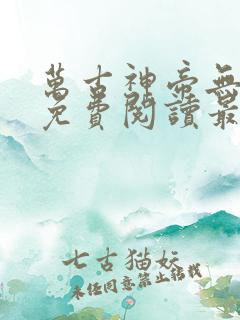 萬古神帝無
免費閱讀最
七古猫妖
未经同意禁止转载